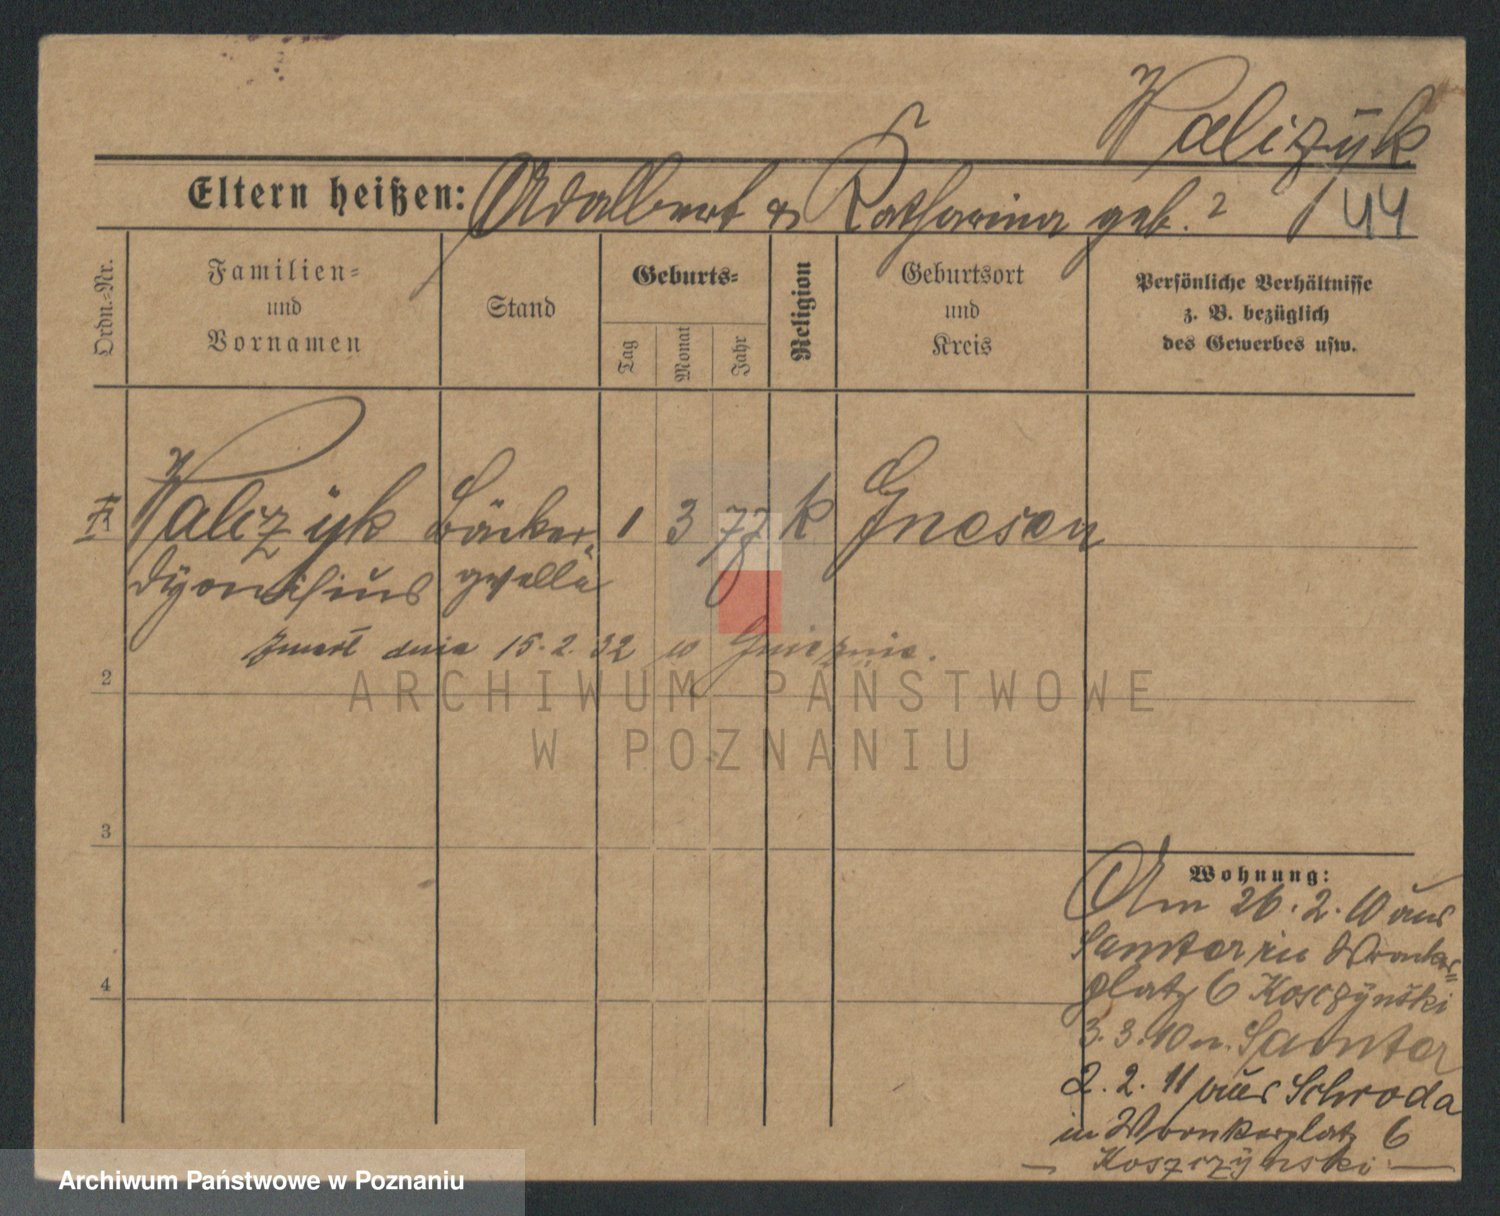 Walczyk
Eltern heißen: Adalbert & Katharina geb. ?
144
Ordn.-Nr.
Familien-
und
Vornamen
Stand
Geburts-
Tag
Monat
Jahr
Religion
Geburtsort
und
Kreis
Persönliche Verhältnisse
z. B. bezüglich
des Gewerbes usw.
Walczyk Bäcker- 1 3 77 k Gnesen
Dyonisius geselle
zmarł dnia 15.2.32 w Gnieźnie.
2
3
4
ARCHIWUM PAŃSTWOWE
W POZNANIU
Wohnung:
Am 26.2.10 aus
Samter in Wronker-
platz 6 Koszczyński
3.3.10 n. Samter
2.2.11 aus Schroda
in Wronkerplatz 6
— Koszczynski —
Archiwum Państwowe w Poznaniu